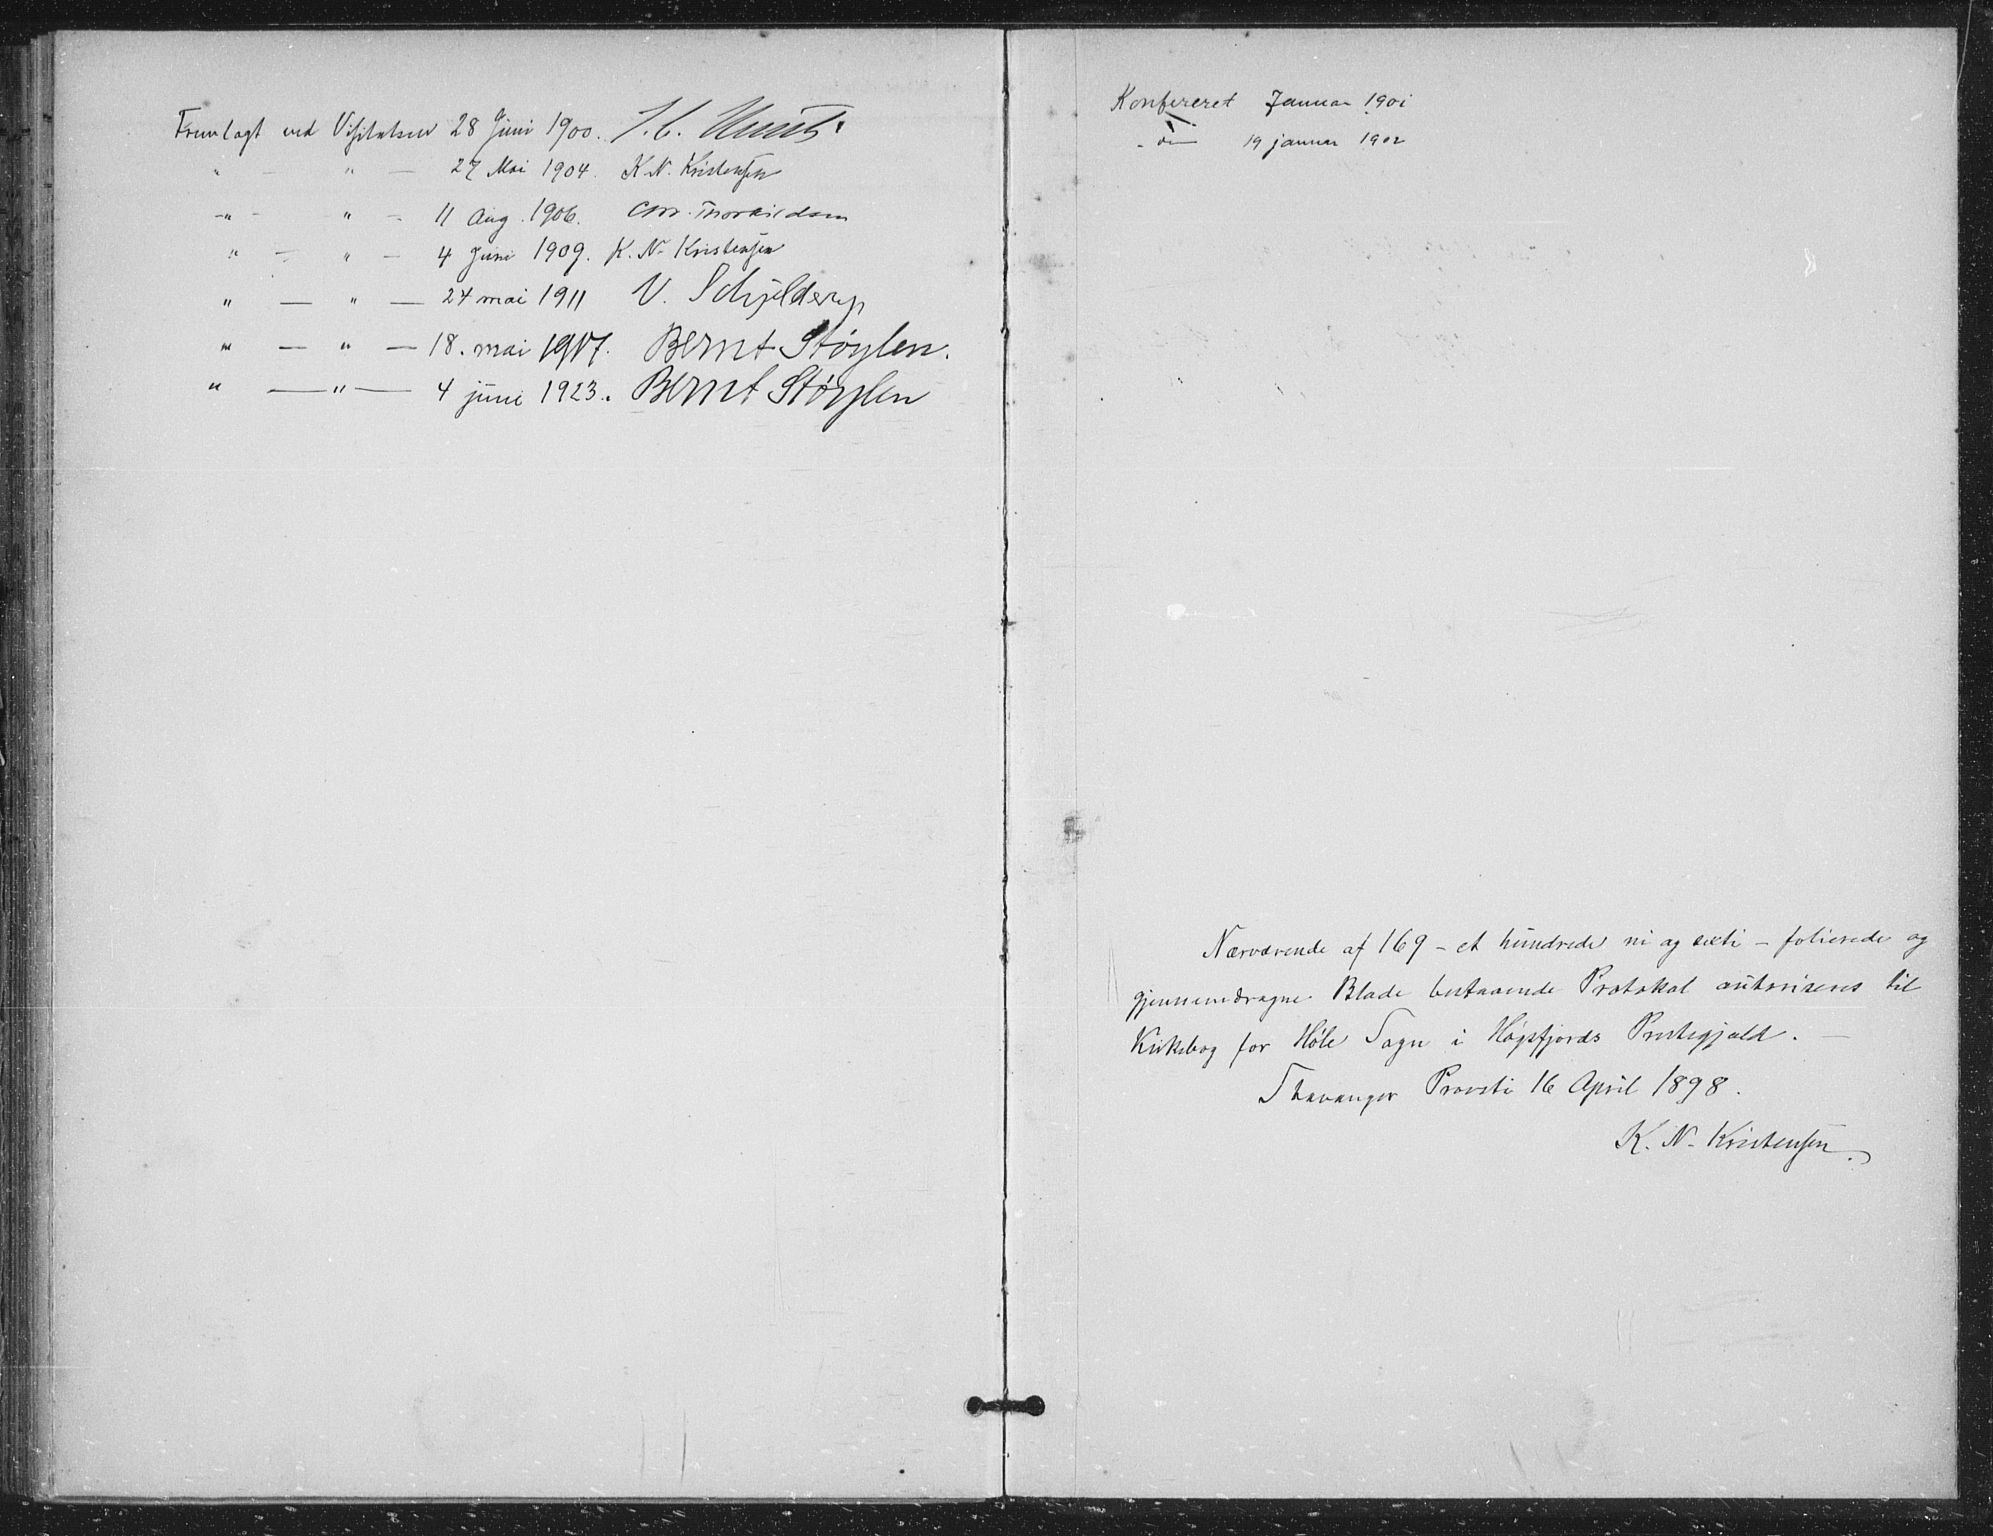 Fremlagt ved Visitatsen 28 Juni 1900. J. C. Heuch
" — " — 27 Mai 1904. K. N. Kristensen
—"— " — 11 Aug. 1906. Thorkildsen
" — " — 4 Juni 1909. K. N. Kristensen
" — " — 24 mai 1911 V. Schjelderup
" — " — 18. mai 1917. Bernt Støylen.
" —"— 4 juni 1923. Bernt Støylen
Konfereret Januar 1901
19 januar 1902
Nærværende af 169 – et hundrede ni og sexti – folierede og
gjennemdragne Blade bestaaende Protokol autoriseres til
Kirkebog for Høle Sogn i Høgsfjords Prestegjeld. —
Stavanger Provsti 16 April 1898.
K. N. Kristensen.